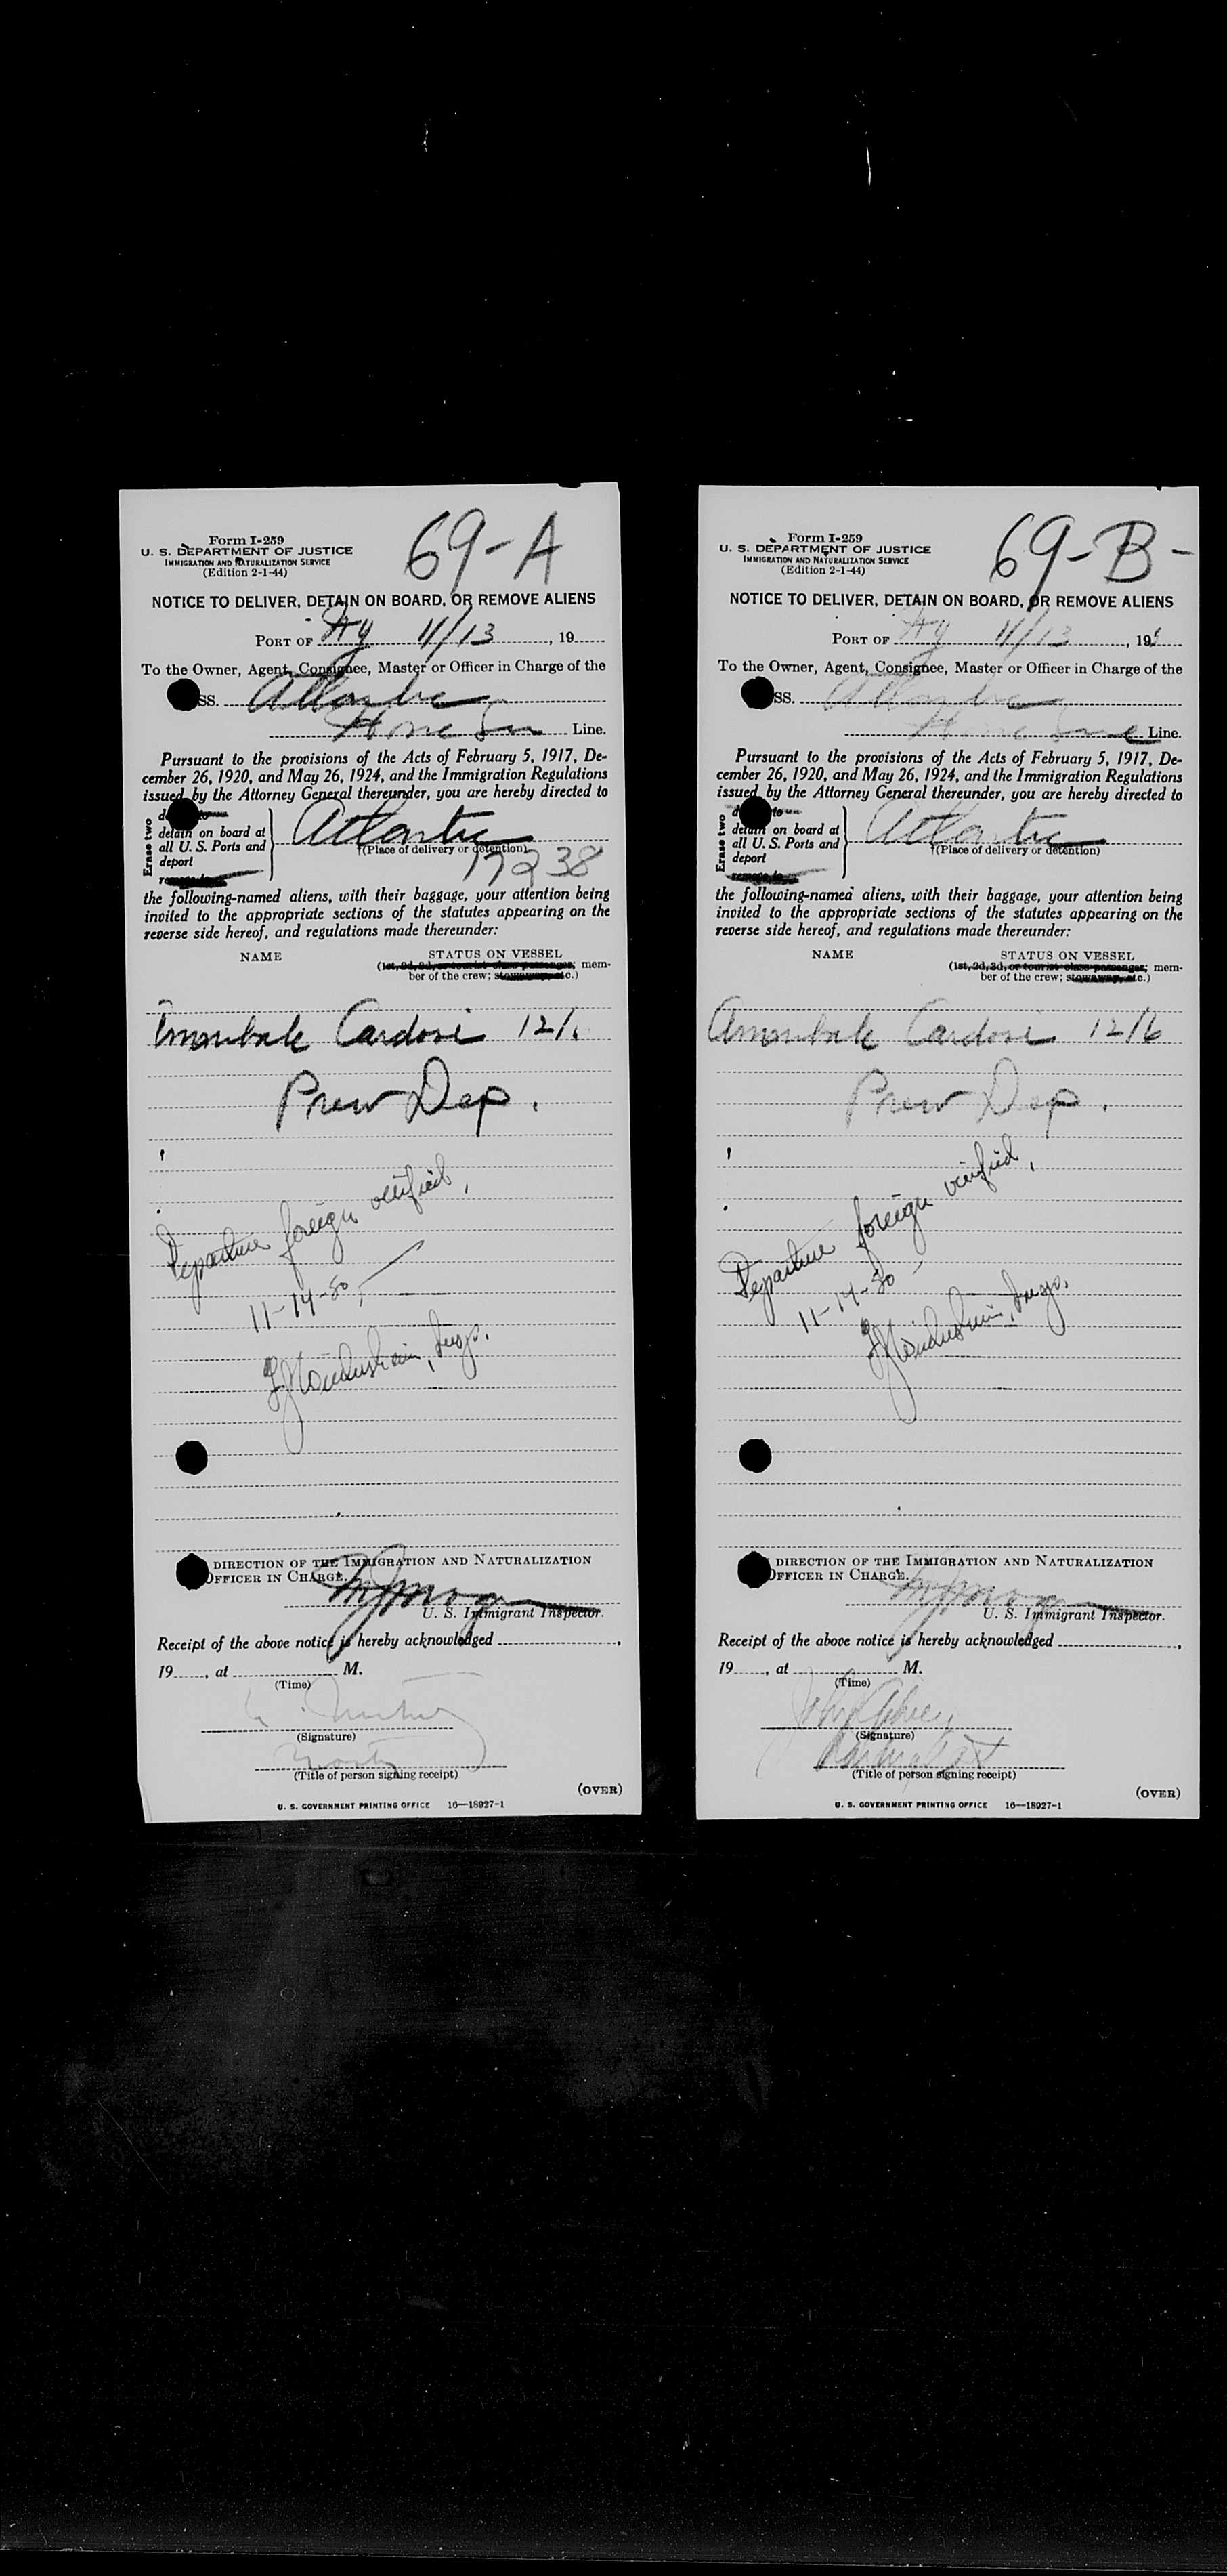 69-A
Form I-259
U. S. DEPARTMENT OF JUSTICE
IMMIGRATION AND NATURALIZATION SERVICE
(Edition 2-1-44)
NOTICE TO DELIVER, DETAIN ON BOARD, OR REMOVE ALIENS
PORT OF NY 11/13, 19
To the Owner, Agent, Consignee, Master or Officer in Charge of the
SS. Atlantic
Home Line.
Pursuant to the provisions of the Acts of February 5, 1917, De-
cember 26, 1920, and May 26, 1924, and the Immigration Regulations
issued by the Attorney General thereunder, you are hereby directed to
Erase two
detain on board at
all U. S. Ports and
deport
Atlantic
(Place of delivery or detention)
17238
the following-named aliens, with their baggage, your attention being
invited to the appropriate sections of the statutes appearing on the
reverse side hereof, and regulations made thereunder:
NAME STATUS ON VESSEL
(1st, 2d, 3d, or tourist class passenger; mem-
ber of the crew; stowaway, etc.)
Annibale Cardosi 12/
Prev Dep.
Departure foreign verified,
11-14-50
Insp.
DIRECTION OF THE IMMIGRATION AND NATURALIZATION
OFFICER IN CHARGE.
U. S. Immigrant Inspector.
Receipt of the above notice is hereby acknowledged
19, at M.
(Time)
(Signature)
(Title of person signing receipt)
(OVER)
U. S. GOVERNMENT PRINTING OFFICE 16—18927-1
69-B-
Form I-259
U. S. DEPARTMENT OF JUSTICE
IMMIGRATION AND NATURALIZATION SERVICE
(Edition 2-1-44)
NOTICE TO DELIVER, DETAIN ON BOARD, OR REMOVE ALIENS
PORT OF NY 11/13, 195
To the Owner, Agent, Consignee, Master or Officer in Charge of the
SS. Atlantic
Home Line Line.
Pursuant to the provisions of the Acts of February 5, 1917, De-
cember 26, 1920, and May 26, 1924, and the Immigration Regulations
issued by the Attorney General thereunder, you are hereby directed to
Erase two
detain on board at
all U. S. Ports and
deport
Atlantic
(Place of delivery or detention)
the following-named aliens, with their baggage, your attention being
invited to the appropriate sections of the statutes appearing on the
reverse side hereof, and regulations made thereunder:
NAME STATUS ON VESSEL
(1st, 2d, 3d, or tourist class passenger; mem-
ber of the crew; stowaway, etc.)
Annibale Cardosi 12/6
Prev Dep.
Departure foreign verified,
11-14-50
Insp.
DIRECTION OF THE IMMIGRATION AND NATURALIZATION
OFFICER IN CHARGE.
U. S. Immigrant Inspector.
Receipt of the above notice is hereby acknowledged
19, at M.
(Time)
John
(Signature)
(Title of person signing receipt)
(OVER)
U. S. GOVERNMENT PRINTING OFFICE 16—18927-1